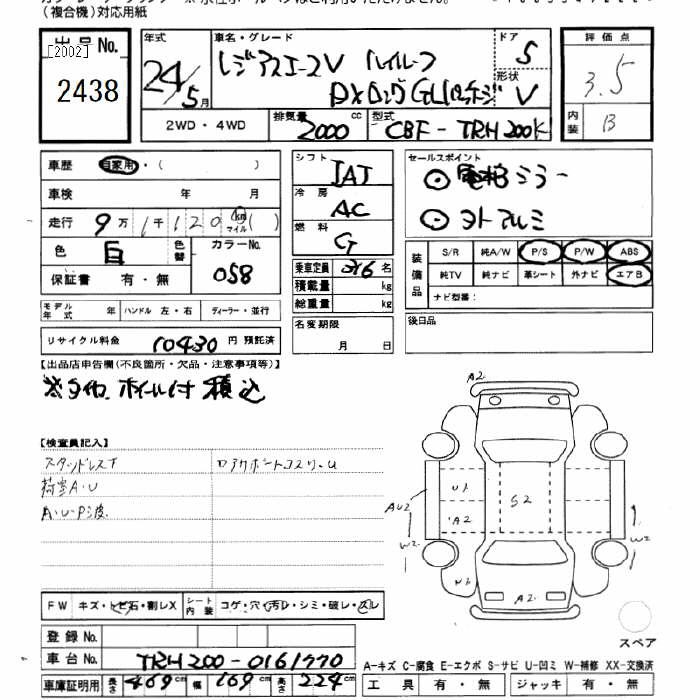 (複合機)対応用紙
出品No.
[2002]
2438
年式
24/5月
車名・グレード
レジアスエースV ハイルーフ
DXロングGLパッケージ
ドア
5
形状
V
評価点
3.5
内装
B
2WD・4WD
排気量 2000 cc
型式 CBF-TRH200K
車歴 自家用・( )
車検 年 月
走行 9万1千120 km マイル ( )
色 白 色替 カラーNo. 058
保証書 有・無
シフト IAT
冷房 AC
燃料 G
乗車定員 3/6 名
積載量 kg
総重量 kg
セールスポイント
電格ミラー
装備品
S/R 純A/W P/S P/W ABS
純TV 純ナビ 革シート 外ナビ エアB
ナビ型番:
モデル年式 年 ハンドル 左・右 ディーラー・並行
リサイクル料金 10430 円 預託済
名変期限
月 日
後日品
【出品店申告欄(不良箇所・欠品・注意事項等)】
※タイヤホイール付 積込
【検査員記入】
スタッドレス
荷室A・U
A・U・P・波
A2
U1
A2
S2
AU2
W2
W2
U1
A2
FW キズ・トビ石・割レX
シート内装 コゲ・穴・汚レ・シミ・破レ・スレ
スペア
登録No.
車台No. TRH200-0161770
車庫証明用 長さ 469cm 幅 169cm 高さ 224cm
A-キズ C-腐食 E-エクボ S-サビ U-凹ミ W-補修 XX-交換済
工具 有・無 ジャッキ 有・無